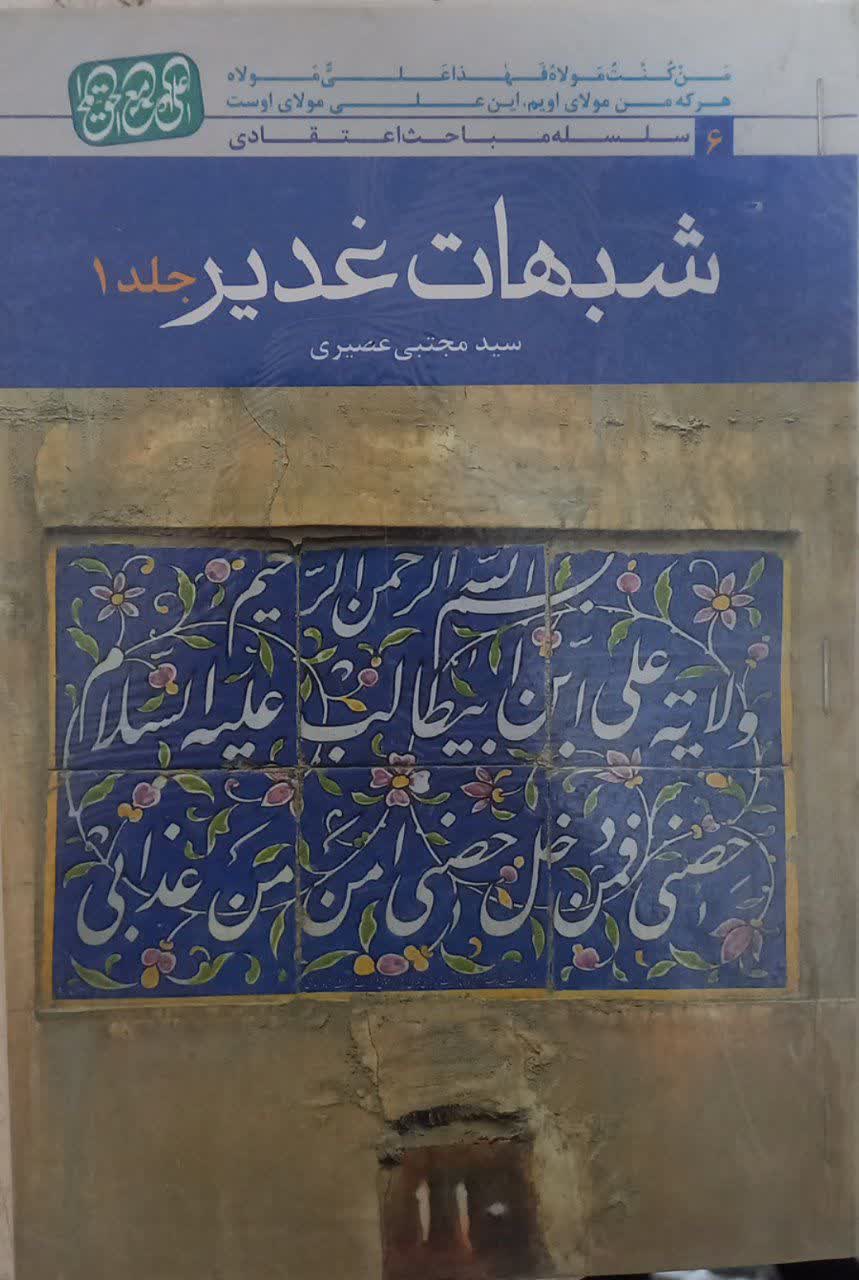 مَن كُنتُ مَولاهُ فَهٰذا عَلیٌّ مَولاه
هر که من مولای اویم، این علی مولای اوست
علی مع الحق
۶ سلسله مباحث اعتقادی
شبهات غدیر جلد ۱
سید مجتبی عصیری
بسم الله الرحمن الرحیم
ولایة علی ابن ابیطالب علیه السلام
حصنی فمن دخل حصنی امن من عذابی
110